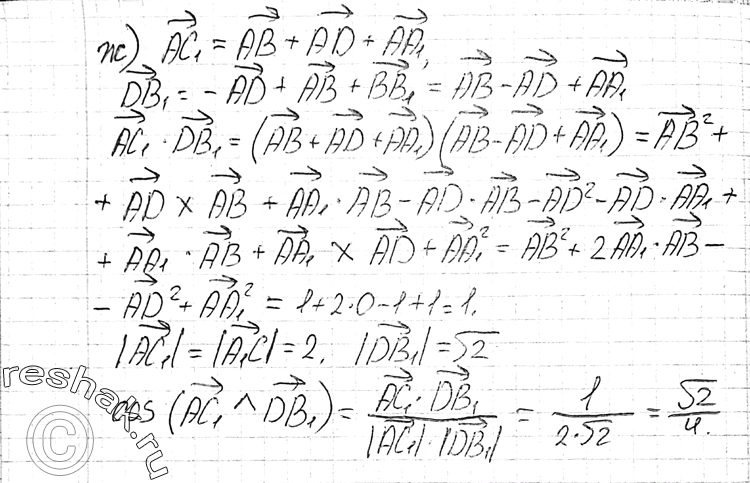 ж) AC₁ = AB + AD + AA₁,
DB₁ = -AD + AB + BB₁ = AB - AD + AA₁
AC₁ · DB₁ = (AB + AD + AA₁)(AB - AD + AA₁) = AB² +
+ AD × AB + AA₁ · AB - AD · AB - AD² - AD · AA₁ +
+ AA₁ · AB + AA₁ × AD + AA₁² = AB² + 2AA₁ · AB -
- AD² + AA₁² = 1 + 2·0 - 1 + 1 = 1.
|AC₁| = |A₁C| = 2, |DB₁| = √2
cos (AC₁ ^ DB₁) = AC₁ · DB₁ / |AC₁| · |DB₁| = 1 / 2·√2 = √2 / 4.
reshak.ru
©